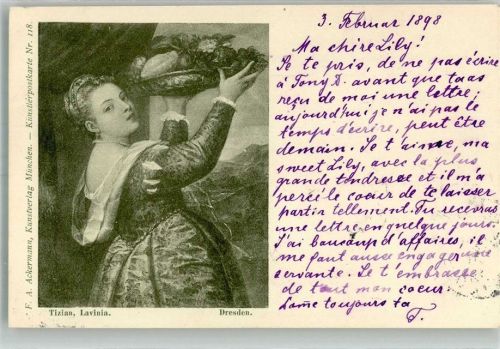 F. A. Ackermann, Kunstverlag München. — Künstlerpostkarte Nr. 118.
Tizian, Lavinia. Dresden.
3. Februar 1898
Ma chire Lily!
Je te pris, de ne pas écrire
à Tony D. avant que tu as
reçu de moi une lettre;
aujourd'hui je n'ai pas le
temps d'écrire, peut être
demain. Je t'aime, ma
sweet Lily, avec la plus
grande tendresse et il m'a
percé le coeur de te laisser
partir tellement. Tu recevras
une lettre en quelque jours.
J'ai baucoup d'affaires, il
me faut aussi engager une
servante. Je t'embrasse
de tout mon coeur.
toujours ta
T.